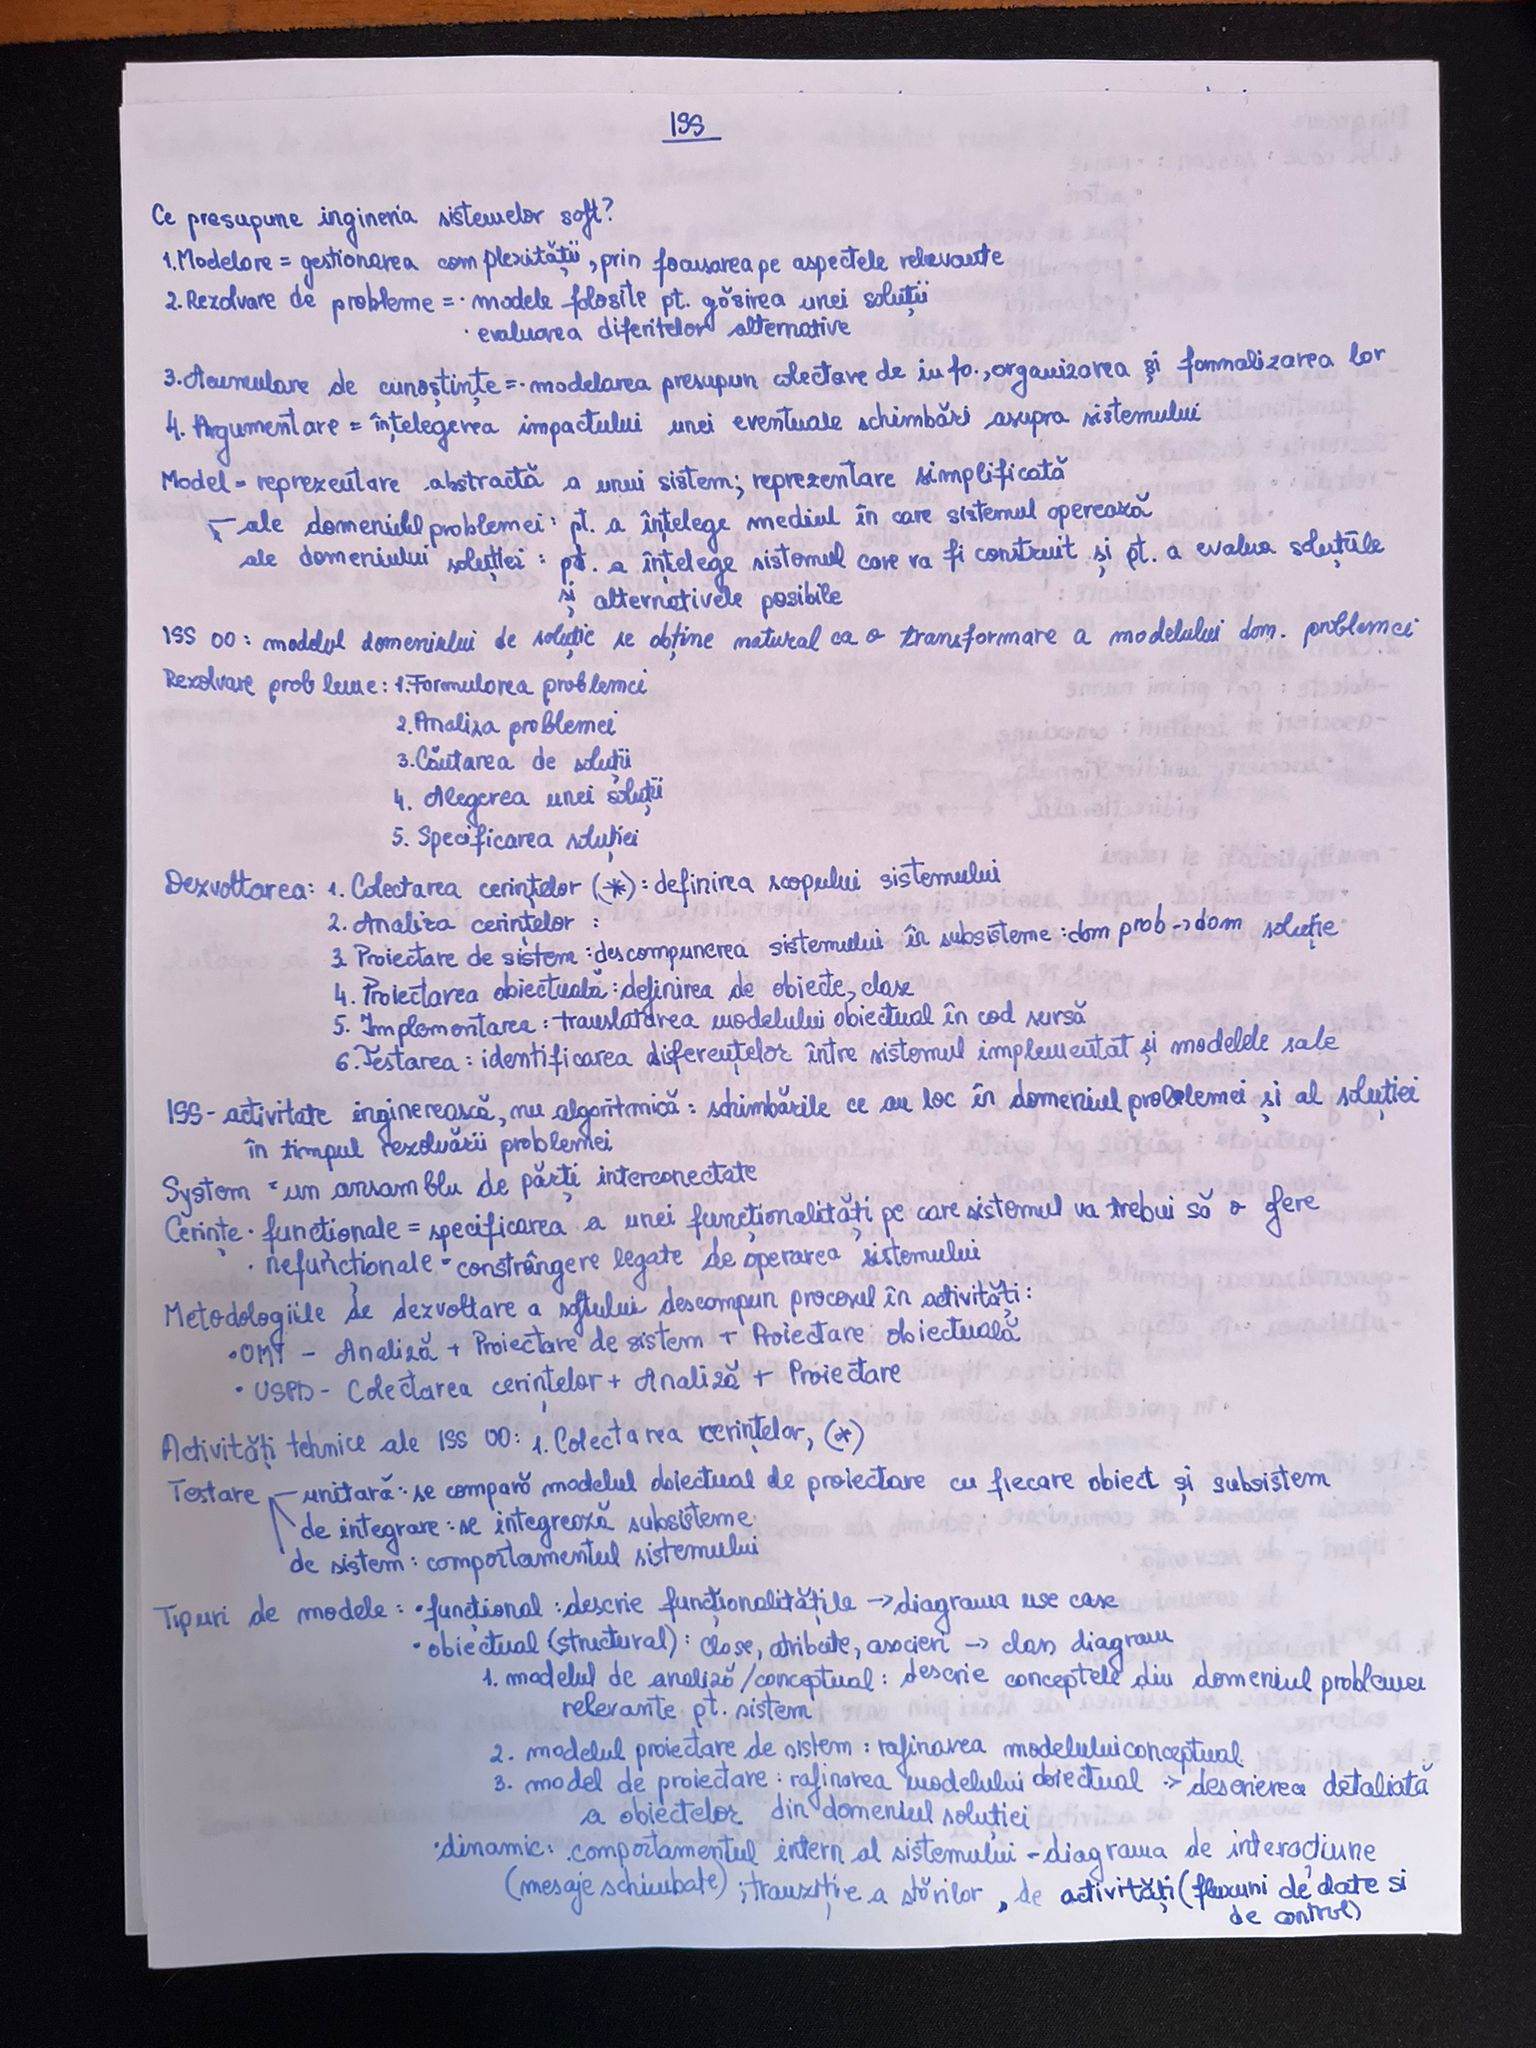 ISS
Ce presupune ingineria sistemelor soft?
1. Modelare = gestionarea complexității, prin focusarea pe aspectele relevante
2. Rezolvare de probleme = · modele folosite pt. găsirea unei soluții
· evaluarea diferitelor alternative
3. Acumulare de cunoștințe = · modelarea presupun colectare de info., organizarea și formalizarea lor
4. Argumentare = înțelegerea impactului unei eventuale schimbări asupra sistemului
Model = reprezentare abstractă a unui sistem; reprezentare simplificată
ale domeniului problemei: pt. a înțelege mediul în care sistemul operează
ale domeniului soluției: pt. a înțelege sistemul care va fi construit și pt. a evalua soluțiile
și alternativele posibile
ISS OO: modelul domeniului de soluție se obține natural ca o transformare a modelului dom. problemei
Rezolvare probleme: 1. Formularea problemei
2. Analiza problemei
3. Căutarea de soluții
4. Alegerea unei soluții
5. Specificarea soluției
Dezvoltarea: 1. Colectarea cerințelor (*): definirea scopului sistemului
2. Analiza cerințelor :
3. Proiectare de sistem: descompunerea sistemului în subsisteme: dom prob -> dom soluție
4. Proiectarea obiectuală: definirea de obiecte, clase
5. Implementarea: translatarea modelului obiectual în cod sursă
6. Testarea: identificarea diferențelor între sistemul implementat și modelele sale
ISS - activitate inginerească, nu algoritmică: schimbările ce au loc în domeniul problemei și al soluției
în timpul rezolvării problemei
System = un ansamblu de părți interconectate
Cerințe · funcționale = specificarea a unei funcționalități pe care sistemul va trebui să o ofere
· nefuncționale = constrângere legate de operarea sistemului
Metodologiile de dezvoltare a softului descompun procesul în activități:
· OMT - Analiză + Proiectare de sistem + Proiectare obiectuală
· USPD - Colectarea cerințelor + Analiză + Proiectare
Activități tehnice ale ISS OO: 1. Colectarea cerințelor, (*)
Testare - unitară: se compară modelul obiectual de proiectare cu fiecare obiect și subsistem
de integrare: se integrează subsisteme
de sistem: comportamentul sistemului
Tipuri de modele: · funcțional: descrie funcționalitățile -> diagrama use case
· obiectual (structural): clase, atribute, asocieri -> class diagram
1. modelul de analiză/conceptual: descrie conceptele din domeniul problemei
relevante pt. sistem
2. modelul proiectare de sistem: rafinarea modelului conceptual
3. model de proiectare: rafinarea modelului obiectual -> descrierea detaliată
a obiectelor din domeniul soluției
· dinamic: comportamentul intern al sistemului - diagrama de interacțiune
(mesaje schimbate); tranziție a stărilor, de activități (fluxuri de date si
de control)